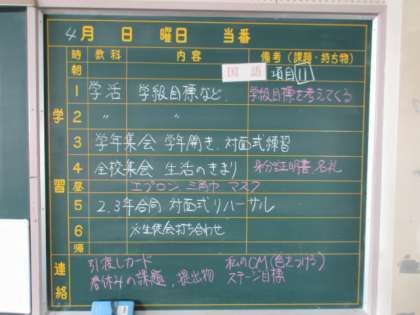 4月 日 曜日 当番
時 教科 内容 備考(課題・持ち物)
朝 国語 項目11
1 学活 学級目標など、 学級目標を考えてくる
学 2 〃 〃
3 学年集会 学年開き、対面式練習
4 全校集会 生活のきまり 身分証明書 名札
習 昼 エプロン 三角巾 マスク
5 2.3年合同 対面式リハーサル
6 生徒会打ち合わせ
帰
連絡 引渡しカード 私のCM(色をつける)
春休みの課題、提出物 ステージ目標